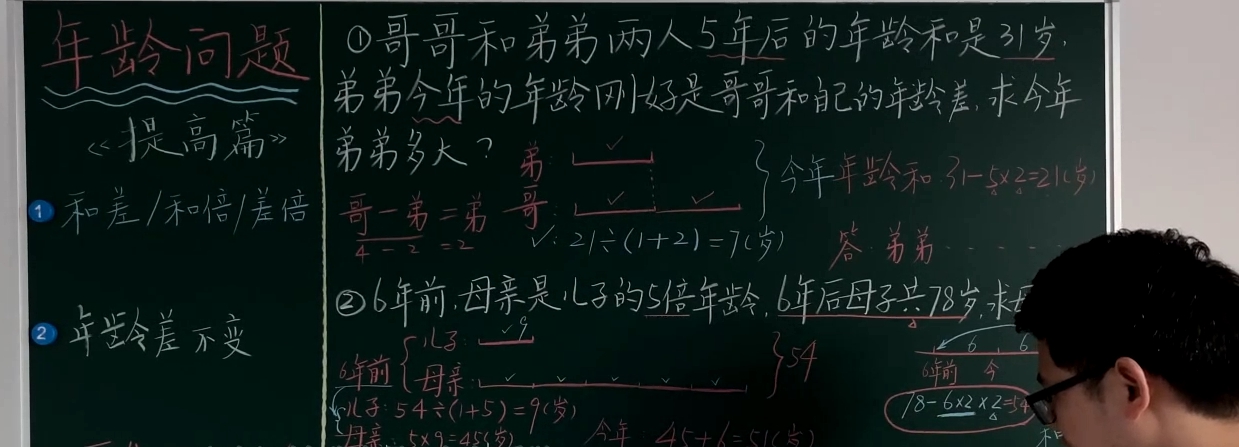 年龄问题
《提高篇》
1 和差/和倍/差倍
2 年龄差不变
①哥哥和弟弟两人5年后的年龄和是31岁,
弟弟今年的年龄刚好是哥哥和自己的年龄差,求今年
弟弟多大?
弟:
哥:
哥-弟=弟
4-2=2
✓:21÷(1+2)=7(岁)
今年年龄和:31-5×2=21(岁)
答:弟弟......
②6年前,母亲是儿子的5倍年龄,6年后母子共78岁,求
6年前
儿子: 9
母亲:
54
儿子:54÷(1+5)=9(岁)
母亲:5×9=45(岁)
今年:45+6=51(岁)
6 6
6年前 今
78-6×2×2=54